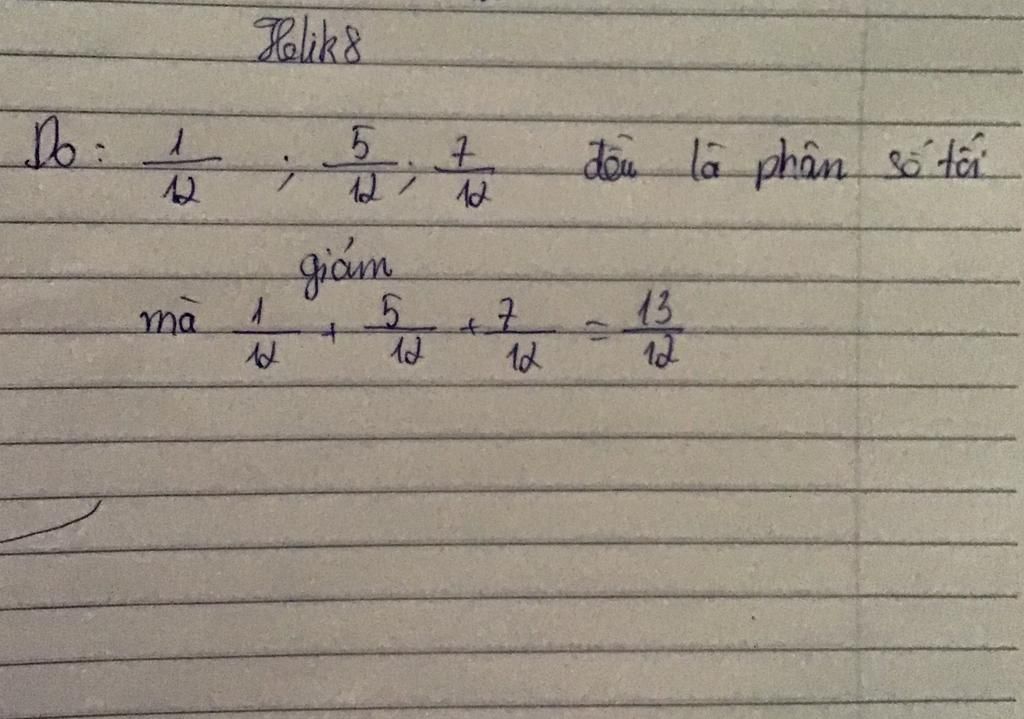 Helik8
Do: 1/12 ; 5/12 ; 7/12 đều là phân số tối
giảm
mà 1/12 + 5/12 + 7/12 = 13/12